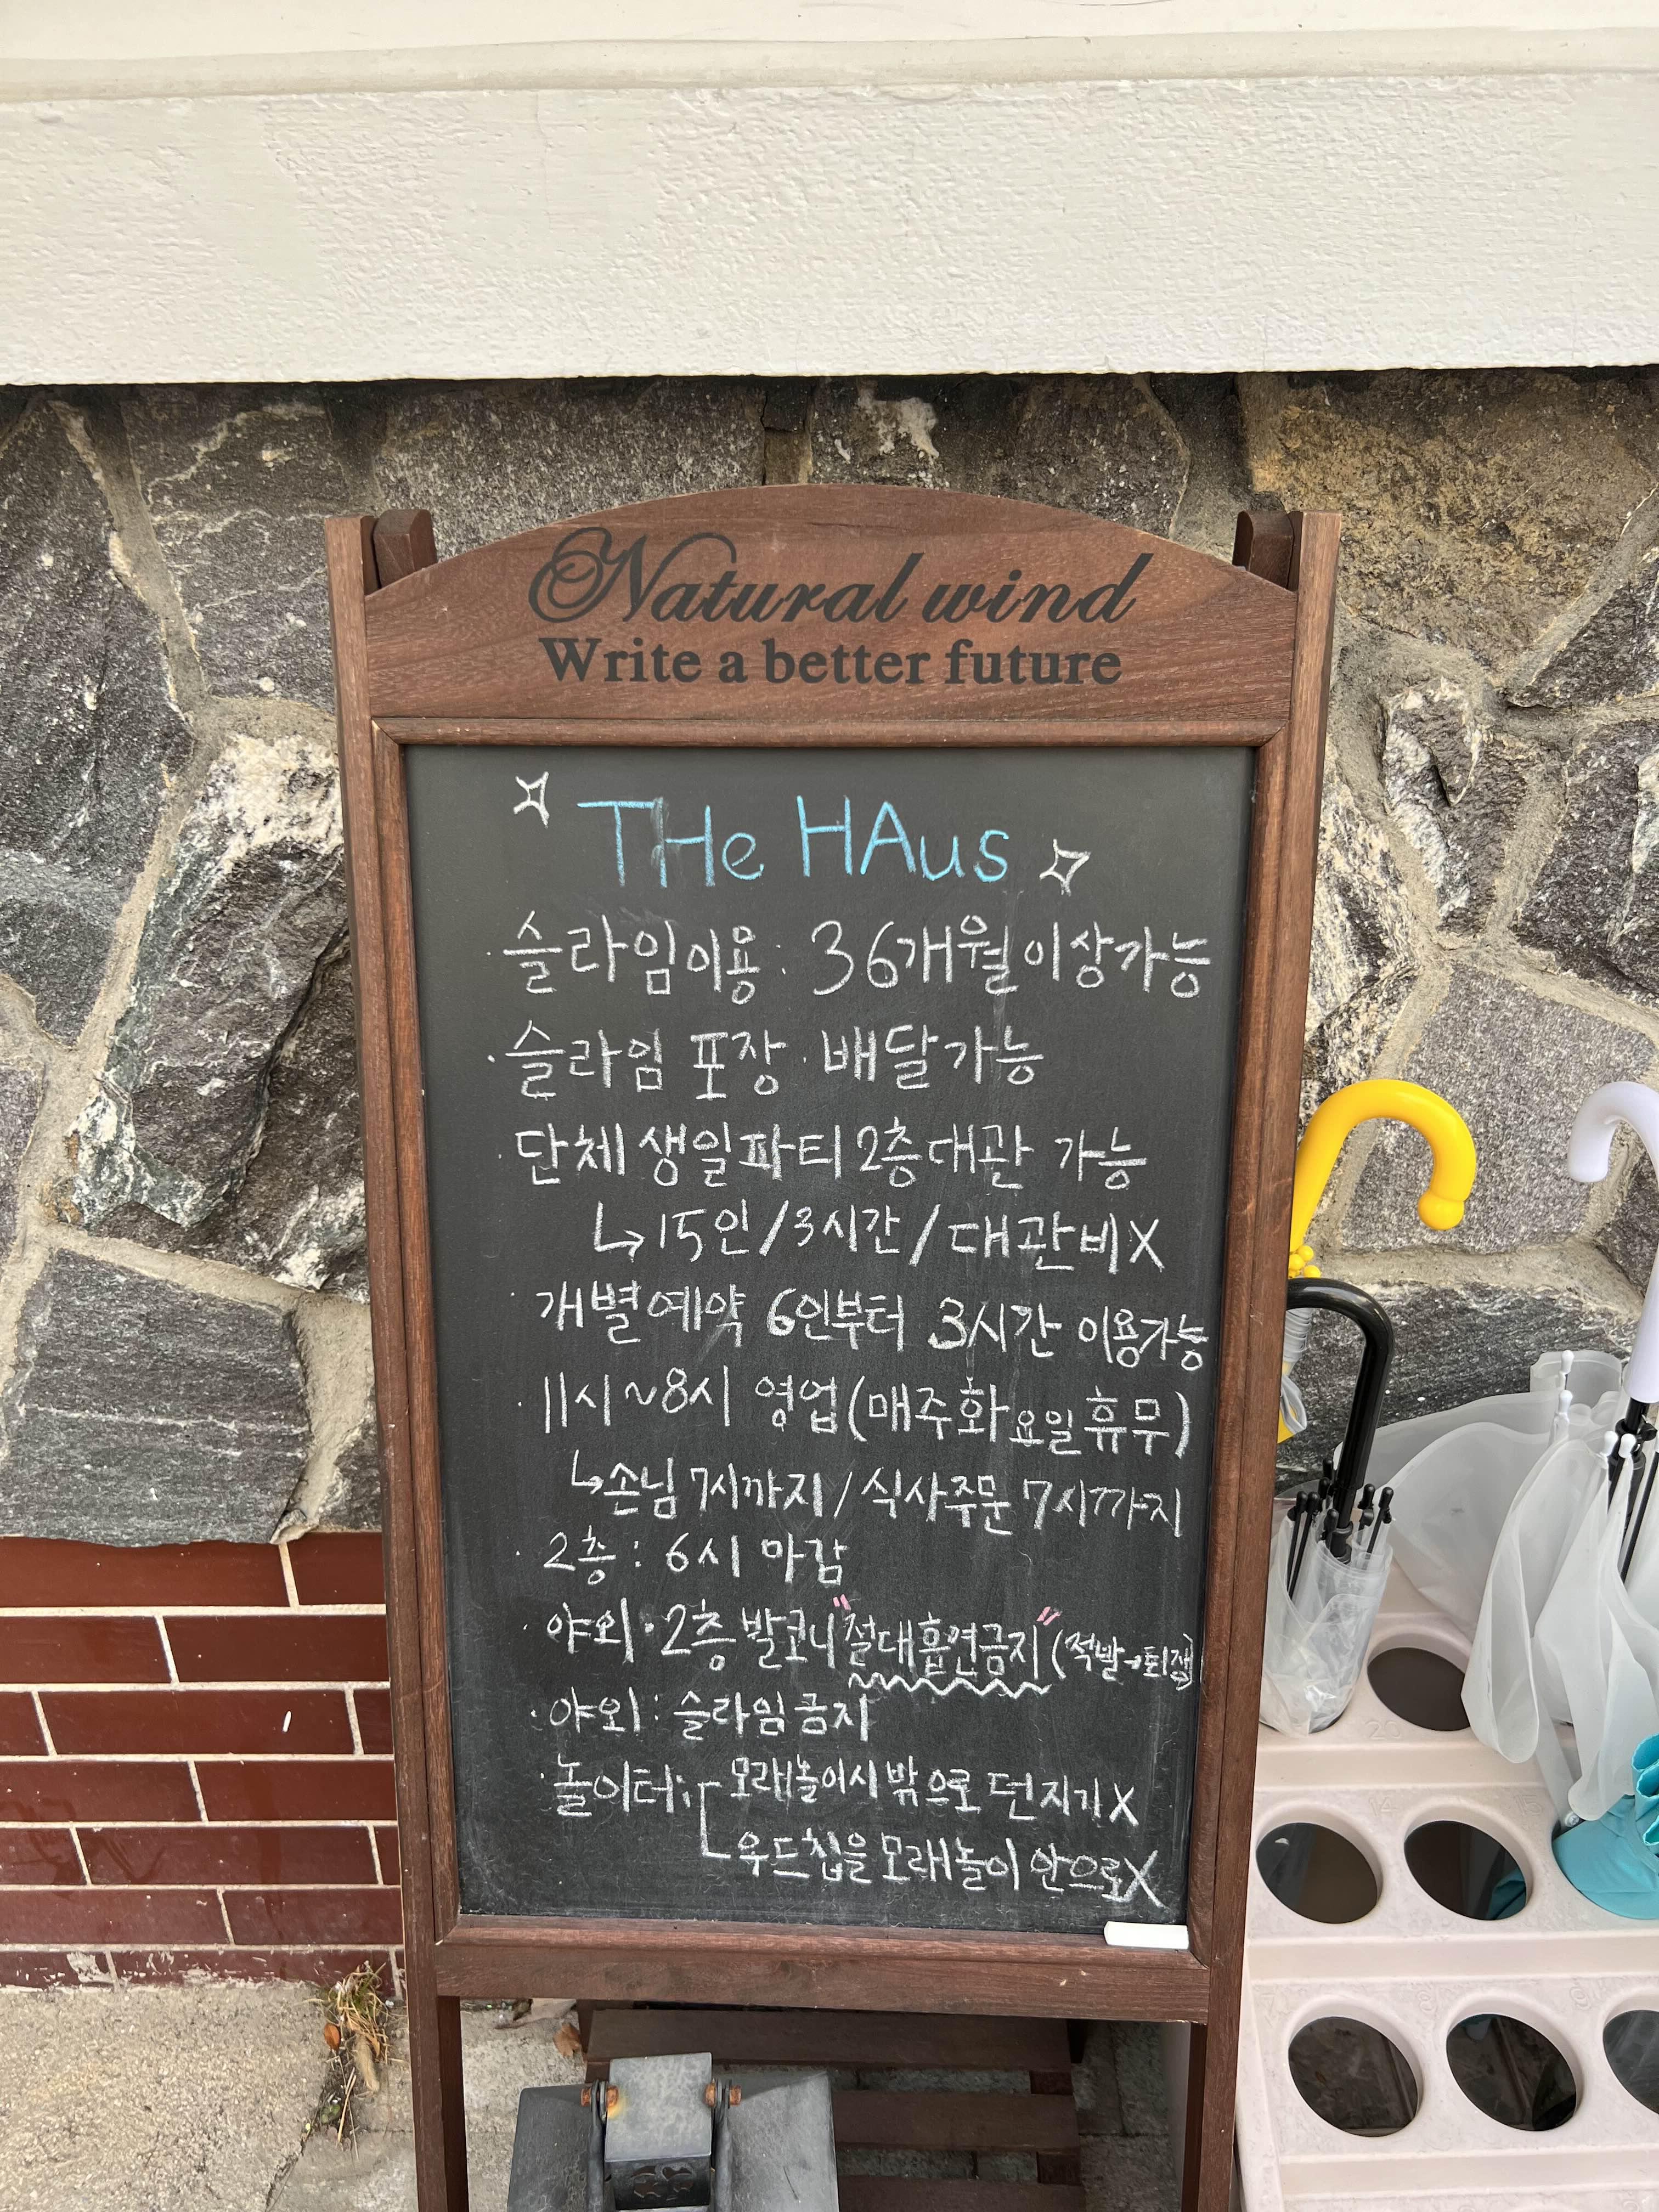 Natural wind
Write a better future
THe HAus
· 슬라임이용 : 36개월이상가능
· 슬라임 포장 · 배달가능
· 단체 생일파티 2층대관 가능
↳ 15인/3시간/대관비X
· 개별예약 6인부터 3시간 이용가능
· 11시~8시 영업(매주화요일휴무)
↳손님 7시까지/식사주문 7시까지
· 2층 : 6시 마감
· 야외·2층 발코니"절대흡연금지"(적발→퇴장)
· 야외 : 슬라임금지
· 놀이터 : 모래놀이시 밖으로 던지기X
우드칩을 모래놀이 안으로X